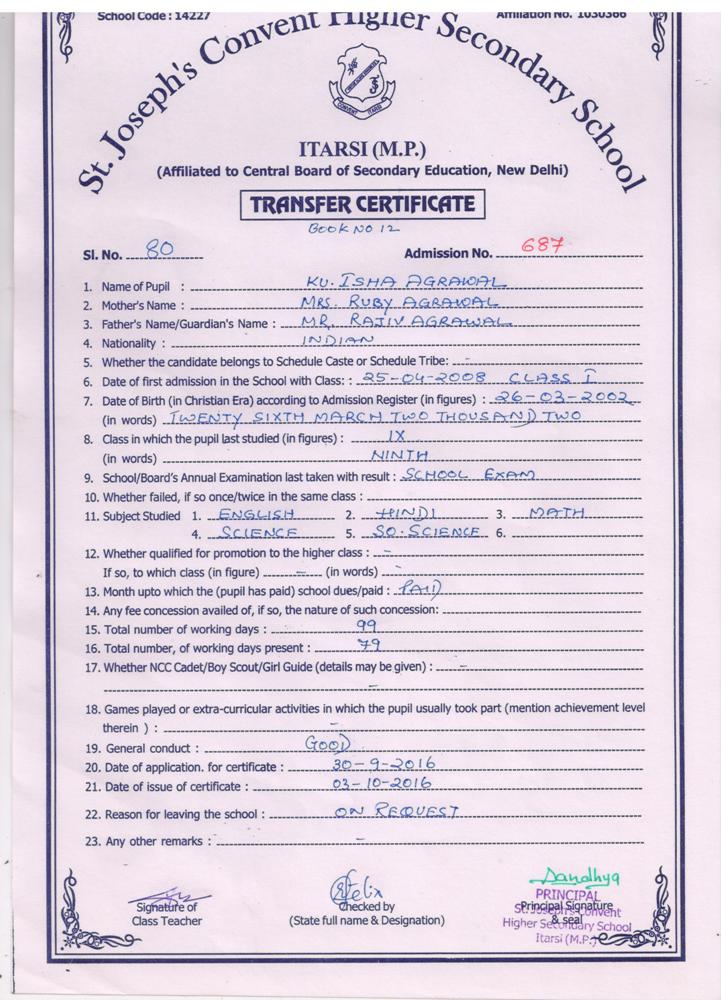 School Code : 14227 Affiliation No. 1030366
St. Joseph's Convent Higher Secondary School
CONVENT ITARSI
ITARSI (M.P.)
(Affiliated to Central Board of Secondary Education, New Delhi)
TRANSFER CERTIFICATE
BOOK NO 12
Sl. No. 80 Admission No. 687
1. Name of Pupil : KU. ISHA AGRAWAL
2. Mother's Name : MRS. RUBY AGRAWAL
3. Father's Name/Guardian's Name : MR. RAJIV AGRAWAL
4. Nationality : INDIAN
5. Whether the candidate belongs to Schedule Caste or Schedule Tribe: -
6. Date of first admission in the School with Class: : 25-04-2008 CLASS I
7. Date of Birth (in Christian Era) according to Admission Register (in figures) : 26-03-2002
(in words) TWENTY SIXTH MARCH TWO THOUSAND TWO
8. Class in which the pupil last studied (in figures) : IX
(in words) NINTH
9. School/Board's Annual Examination last taken with result : SCHOOL EXAM
10. Whether failed, if so once/twice in the same class :
11. Subject Studied 1. ENGLISH 2. HINDI 3. MATH
4. SCIENCE 5. SO. SCIENCE 6.
12. Whether qualified for promotion to the higher class : -
If so, to which class (in figure) - (in words) -
13. Month upto which the (pupil has paid) school dues/paid : PAID
14. Any fee concession availed of, if so, the nature of such concession:
15. Total number of working days : 99
16. Total number, of working days present : 79
17. Whether NCC Cadet/Boy Scout/Girl Guide (details may be given) : -
-
18. Games played or extra-curricular activities in which the pupil usually took part (mention achievement level
therein ) : -
19. General conduct : GOOD
20. Date of application. for certificate : 30-9-2016
21. Date of issue of certificate : 03-10-2016
22. Reason for leaving the school : ON REQUEST
23. Any other remarks : -
Sandhya
Felix
PRINCIPAL
Signature of Checked by Principal Signature
St. Joseph's Convent
Class Teacher (State full name & Designation) & seal
Higher Secondary School
Itarsi (M.P.)